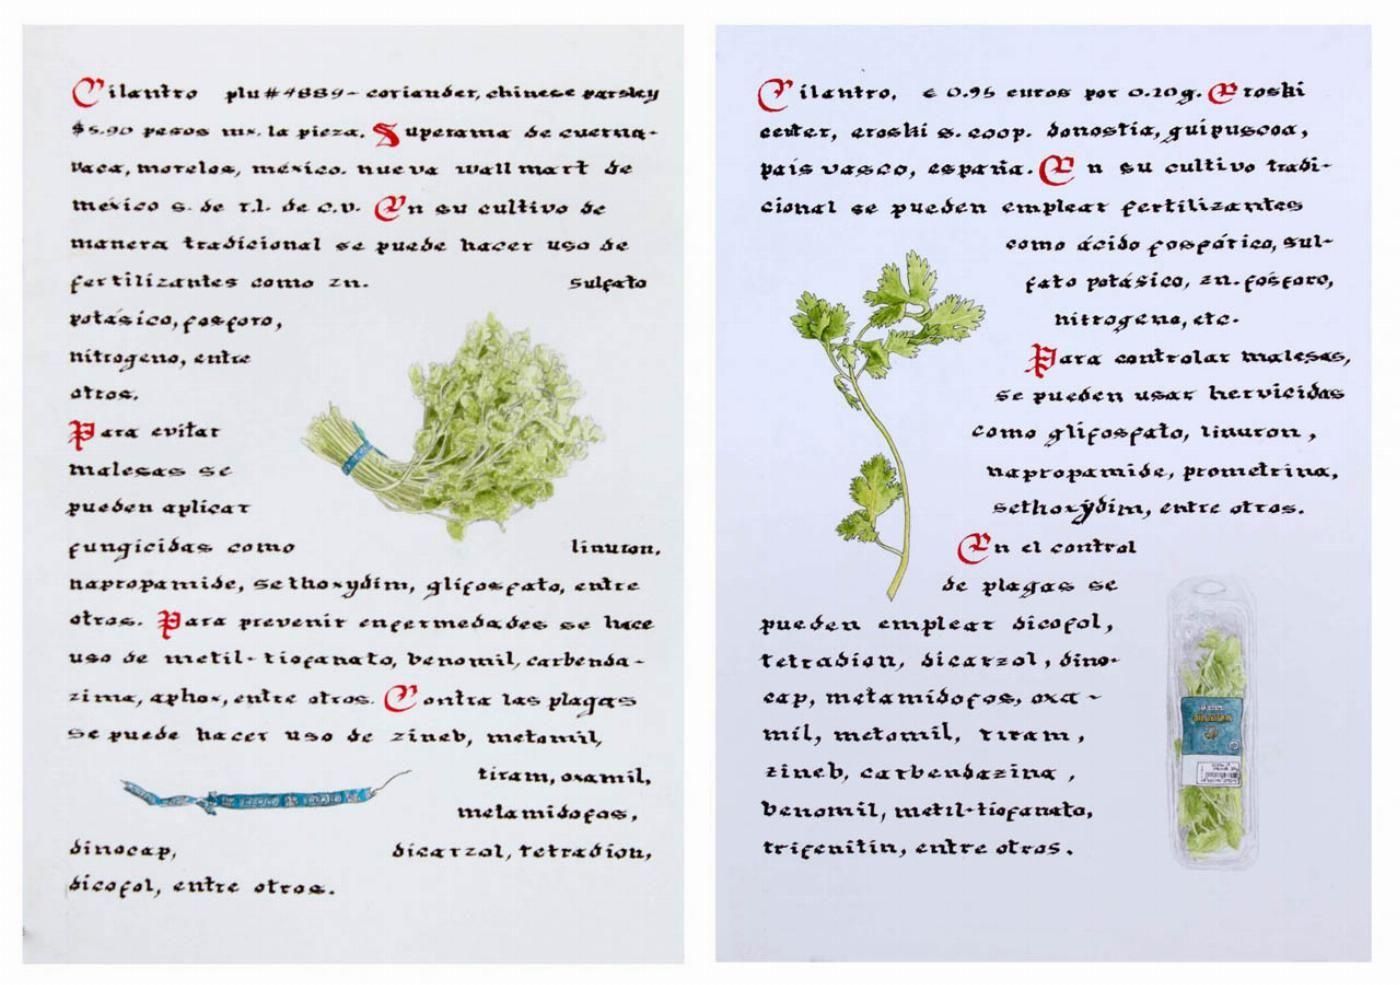 Cilantro plu#4889- coriander, chinese parsley
$5.90 pesos mx. la pieza. Superama de cuerna-
vaca, morelos, méxico. nueva wall mart de
méxico s. de r.l. de c.v. En su cultivo de
manera tradicional se puede hacer uso de
fertilizantes como zn. sulfato
potásico, fosforo,
nitrogeno, entre
otros.
Para evitar
malesas se
pueden aplicar
fungicidas como linuron,
napropamide, sethoxydim, glifosfato, entre
otros. Para prevenir enfermedades se hace
uso de metil-tiofanato, benomil, carbenda-
zima, aphox, entre otros. Contra las plagas
se puede hacer uso de zineb, metomil,
tiram, oxamil,
metamidofos,
dinocap, dicarzol, tetradion,
dicofol, entre otros.
Cilantro, € 0.95 euros por 0.20g. Eroski
center, eroski s. coop. donostia, guipuscoa,
país vasco, españa. En su cultivo tradi-
cional se pueden emplear fertilizantes
como ácido fosfórico, sul-
fato potásico, zn. fosforo,
nitrogeno, etc.
Para controlar malesas,
se pueden usar hervicidas
como glifosfato, linuron,
napropamide, prometrina,
sethoxydim, entre otros.
En el control
de plagas se
pueden emplear dicofol,
tetradion, dicarzol, dino-
cap, metamidofos, oxa-
mil, metomil, tiram,
zineb, carbendazina,
benomil, metil-tiofanato,
trifenitin, entre otros.